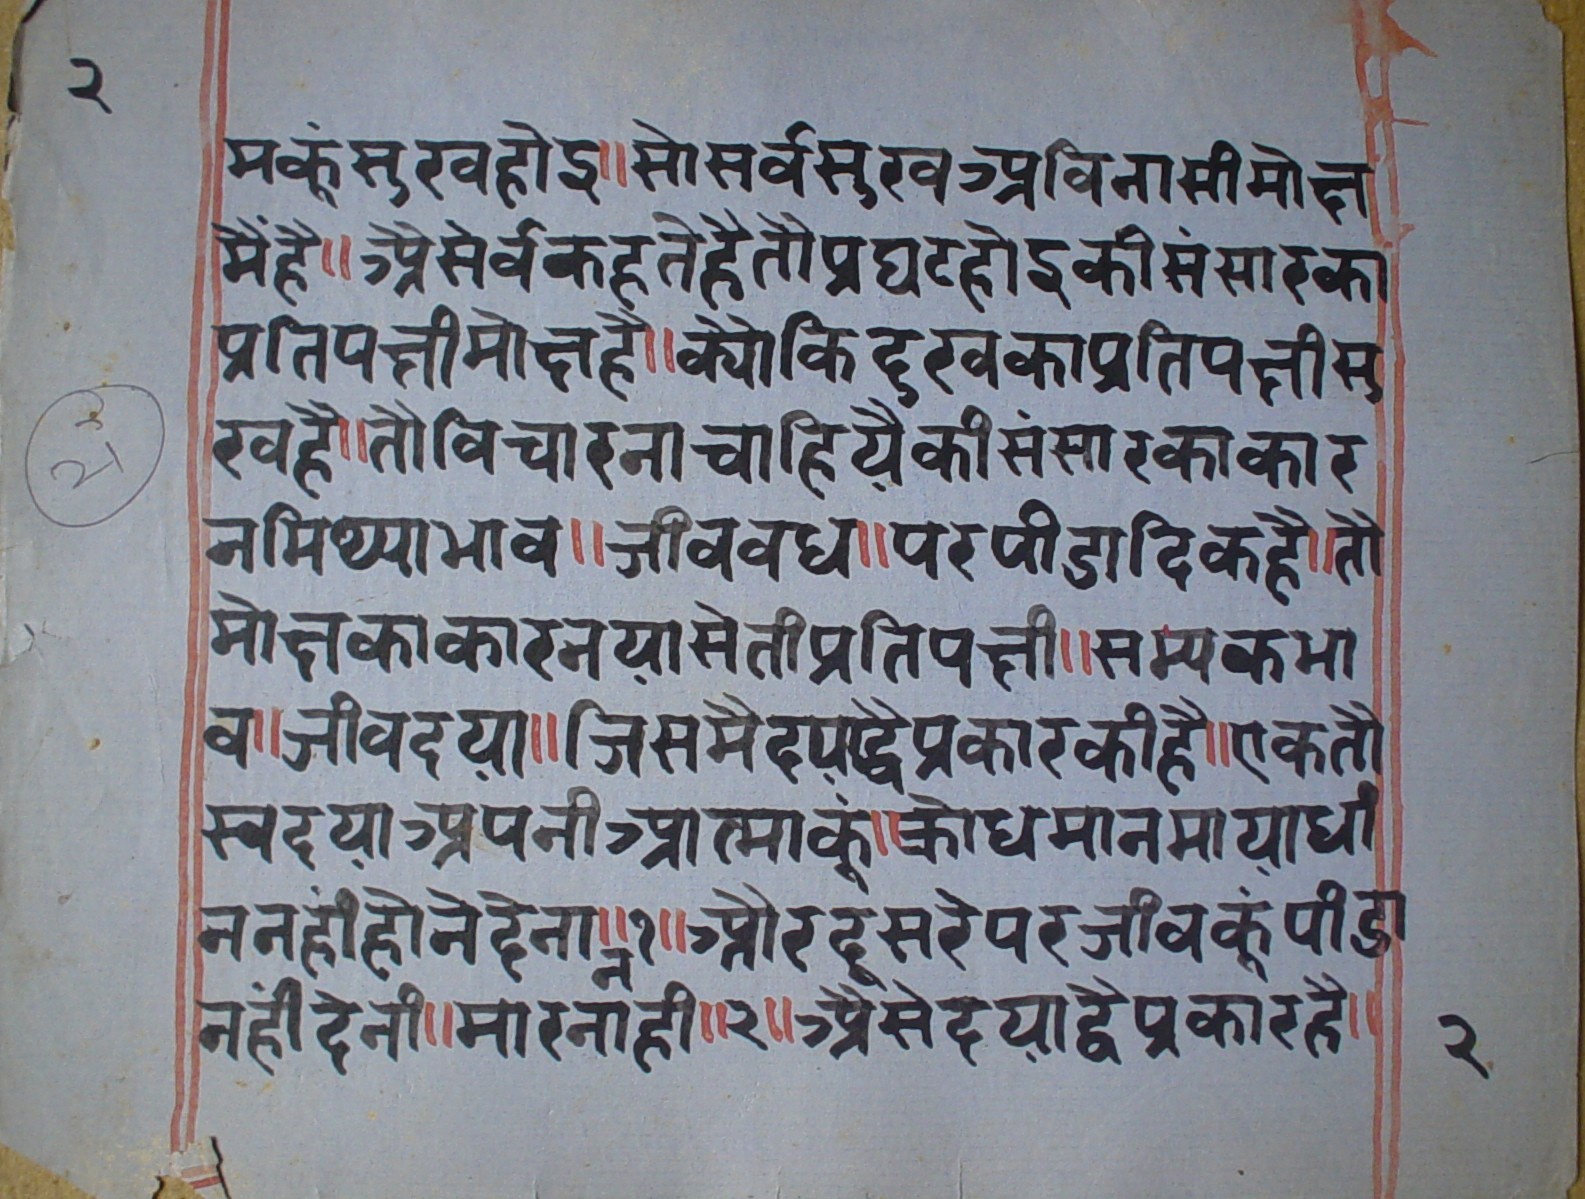 २
मकूंसुखहोइ॥सोसर्वसुखअविनासीमोक्ष
मैंहै॥अैसेर्वकहतेहैतौप्रघटहोइकीसंसारका
प्रतिपक्षीमोक्षहै॥क्योकिदुखकाप्रतिपक्षीसु
खहै॥तौविचारनाचाहिय़ैकीसंसारकाकार
नमिथ्याभाव॥जीववध॥परपीडादिकहै॥तौ
मोक्षकाकारनय़ासेतीप्रतिपक्षी॥सम्यकभा
व॥जीवदय़ा॥जिसमैदय़ाद्वैप्रकारकीहै॥एकतौ
स्वदय़ाअपनीआत्माकूं॥क्रोधमानमाय़ाधी
ननहींहोनेदेना॥१॥औरदूसरेपरजीवकूंपीडा
न
नहींदेनी॥मारनाही॥२॥अैसेदय़ाद्वैप्रकारहै॥
२